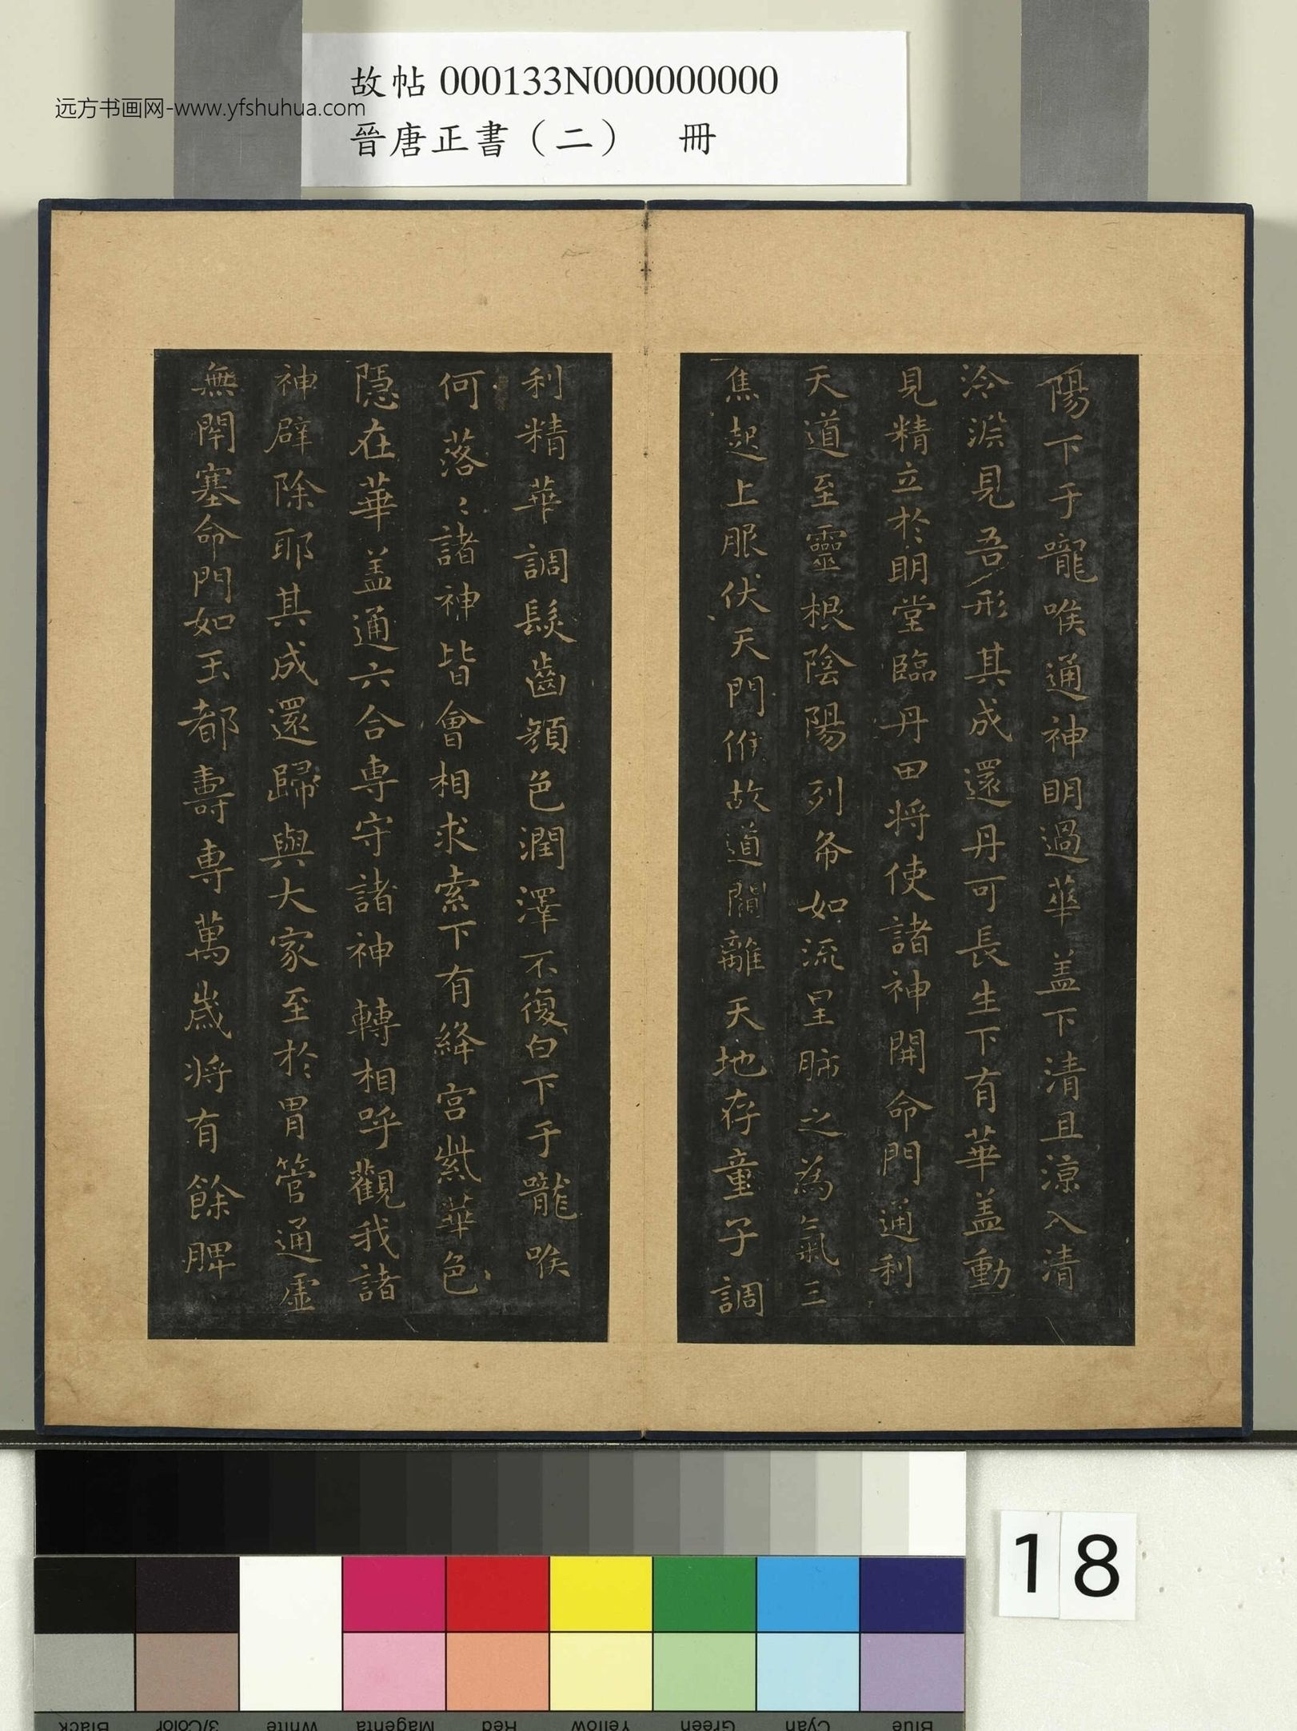 故帖 000133N000000000
远方书画网-www.yfshuhua.com
晉唐正書（二） 冊
陽下于嚨喉通神明過華盖下清且涼入清
泠淵見吾形其成還丹可長生下有華盖動
見精立於明堂臨丹田将使諸神開命門通利
天道至靈根陰陽列布如流星肺之為氣三
焦起上服伏天門候故道闚離天地存童子調
利精華調髮齒顏色潤澤不復白下于嚨喉
何落〻諸神皆會相求索下有絳宫紫華色
隱在華盖通六合専守諸神轉相呼觀我諸
神辟除耶其成還歸與大家至於胃管通虛
無閈塞命門如玉都壽専萬歲将有餘脾
18
Black
3/Color
White
Magenta
Red
Yellow
Green
Cyan
Blue